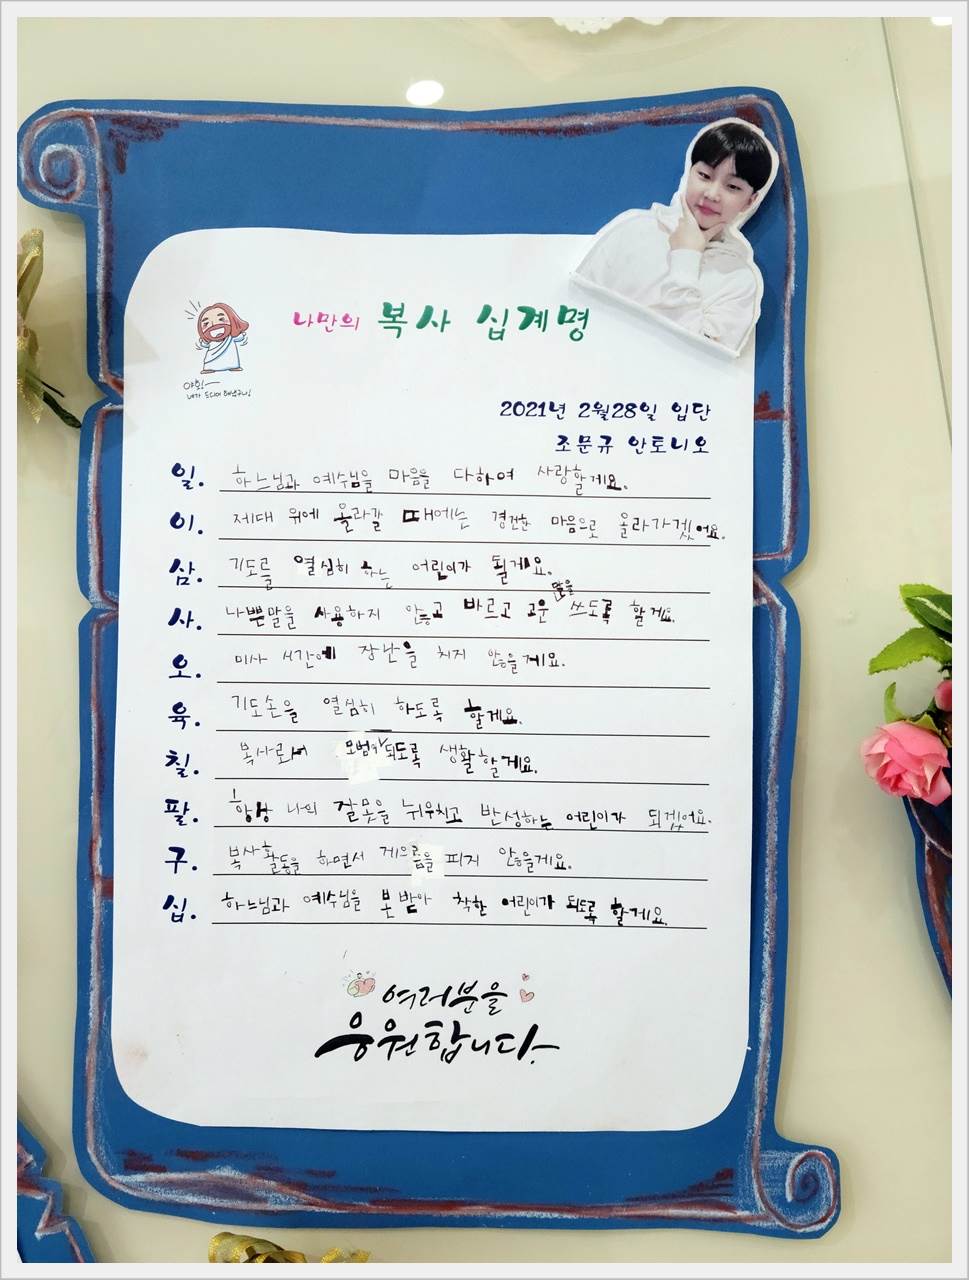 나만의 복사 십계명
야호!
내가 드디어 해냈구나!
2021년 2월28일 입단
조문규 안토니오
일. 하느님과 예수님을 마음을 다하여 사랑할게요.
이. 제대 위에 올라갈 때에는 경건한 마음으로 올라가겠어요.
삼. 기도를 열심히 하는 어린이가 될게요.
사. 나쁜말을 사용하지 않고 바르고 고운 말을 쓰도록 할게요.
오. 미사 시간에 장난을 치지 않을게요.
육. 기도손을 열심히 하도록 할게요.
칠. 복사로서 모범가 되도록 생활할게요.
팔. 항상 나의 잘못을 뉘우치고 반성하는 어린이가 되겠어요.
구. 복사활동을 하면서 게으름을 피지 않을게요.
십. 하느님과 예수님을 본받아 착한 어린이가 되도록 할게요.
여러분을
응원합니다.